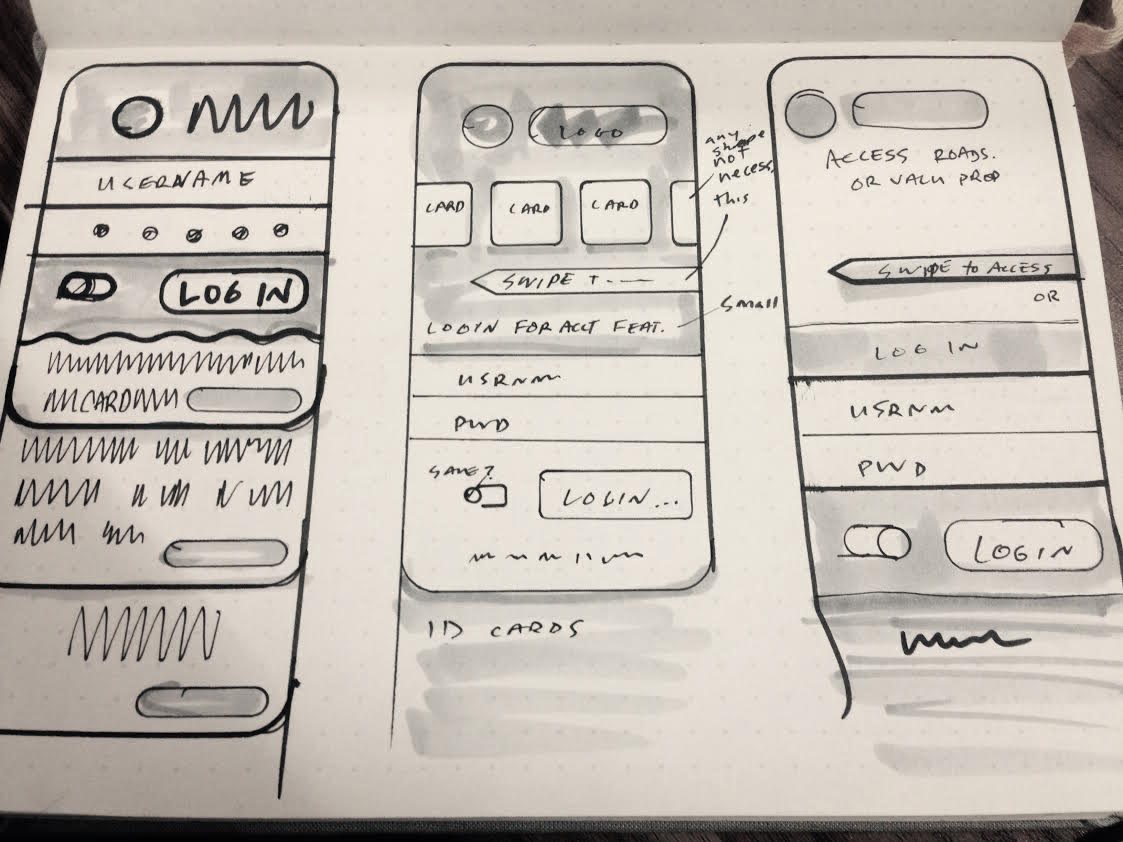 USERNAME
LOG IN
CARD
LOGO
any
shape
not
necess.
this
CARD
CARD
CARD
SWIPE T
small
LOGIN FOR ACCT FEAT.
USRNM
PWD
SAVE?
LOGIN...
ID CARDS
ACCESS ROADS.
OR VALU PROP
SWIPE to ACCESS
OR
LOG IN
USRNM
PWD
LOGIN